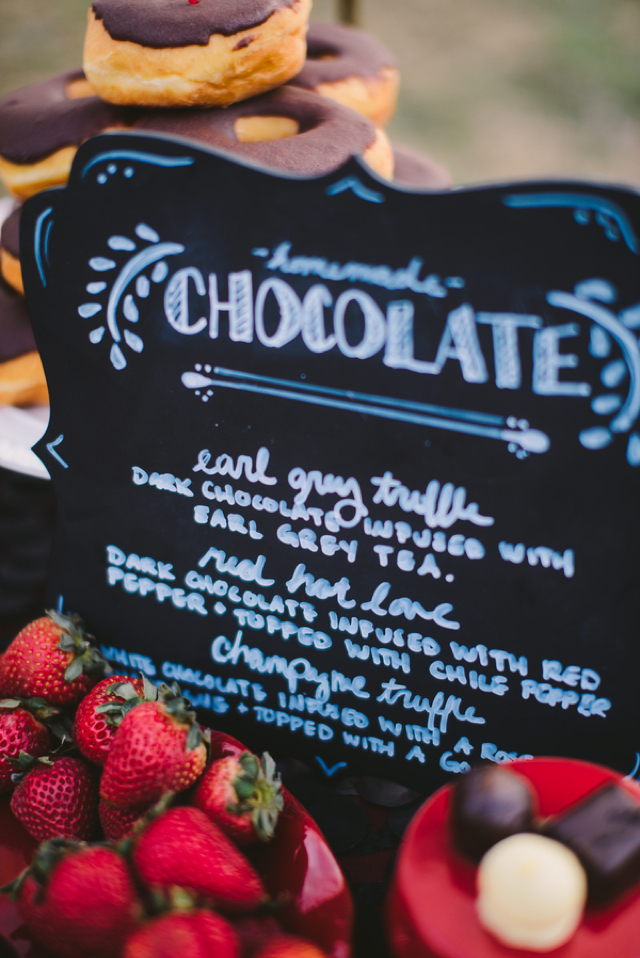 -homemade-
CHOCOLATE
earl grey truffle
DARK CHOCOLATE INFUSED WITH
EARL GREY TEA.
red hot love
DARK CHOCOLATE INFUSED WITH RED
PEPPER + TOPPED WITH CHILE POPPER
champagne truffle
WHITE CHOCOLATE INFUSED WITH A
+ TOPPED WITH A